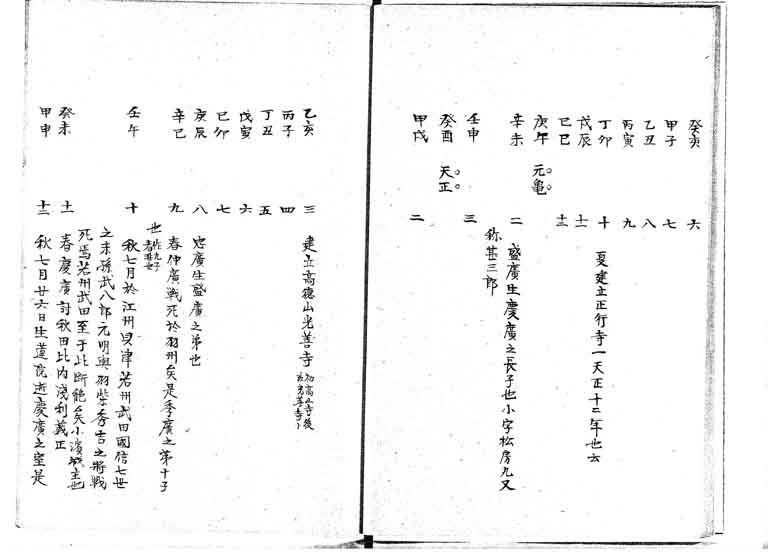 癸亥 六
甲子 七
乙丑 八
丙寅 九
丁卯 十 夏建立正行寺一天正十二年也云
戊辰 十一
己巳 十二
庚午 元亀
辛未 二 盛廣生慶廣之長子也小字松房丸又
称甚三郎
壬申 三
癸酉 天正
甲戌 二
乙亥 三 建立高德山光善寺 初高 寺後 光善寺
丙子 四
丁丑 五
戊寅 六
己卯 七
庚辰 八 忠廣生盛廣之弟也
辛巳 九 春仲廣戰死於羽州矣是季廣之第十子
也
壬午 十 秋七月於江州貝津若州武田國信七世
之末孫武八郎元明與羽柴秀吉之將戰
死焉若州武田至于此断絶矣小濱城主也
癸未 十一 春慶廣討秋田比内浅利義正
甲申 十二 秋七月廿六日生蓮院逝慶廣之室是